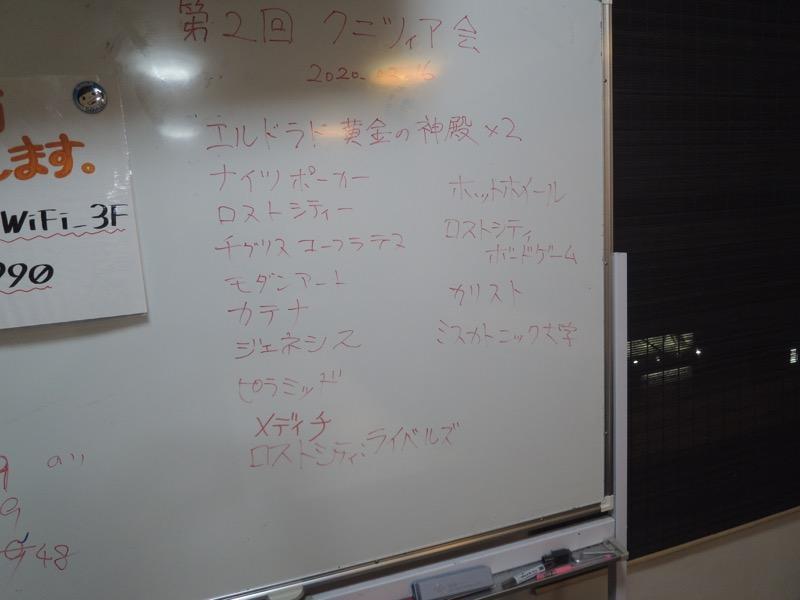 第2回 クニツィア会
2020.02.16
エルドラド黄金の神殿×2
ナイツポーカー
ロストシティー
チグリスユーフラテス
モダンアート
カテナ
ジェネシス
ピラミッド
メディチ
ロストシティ:ライベルズ
ホットホイール
ロストシティ
ボードゲーム
カリスト
ミスカトニック大学
します。
WiFi_3F
990
48